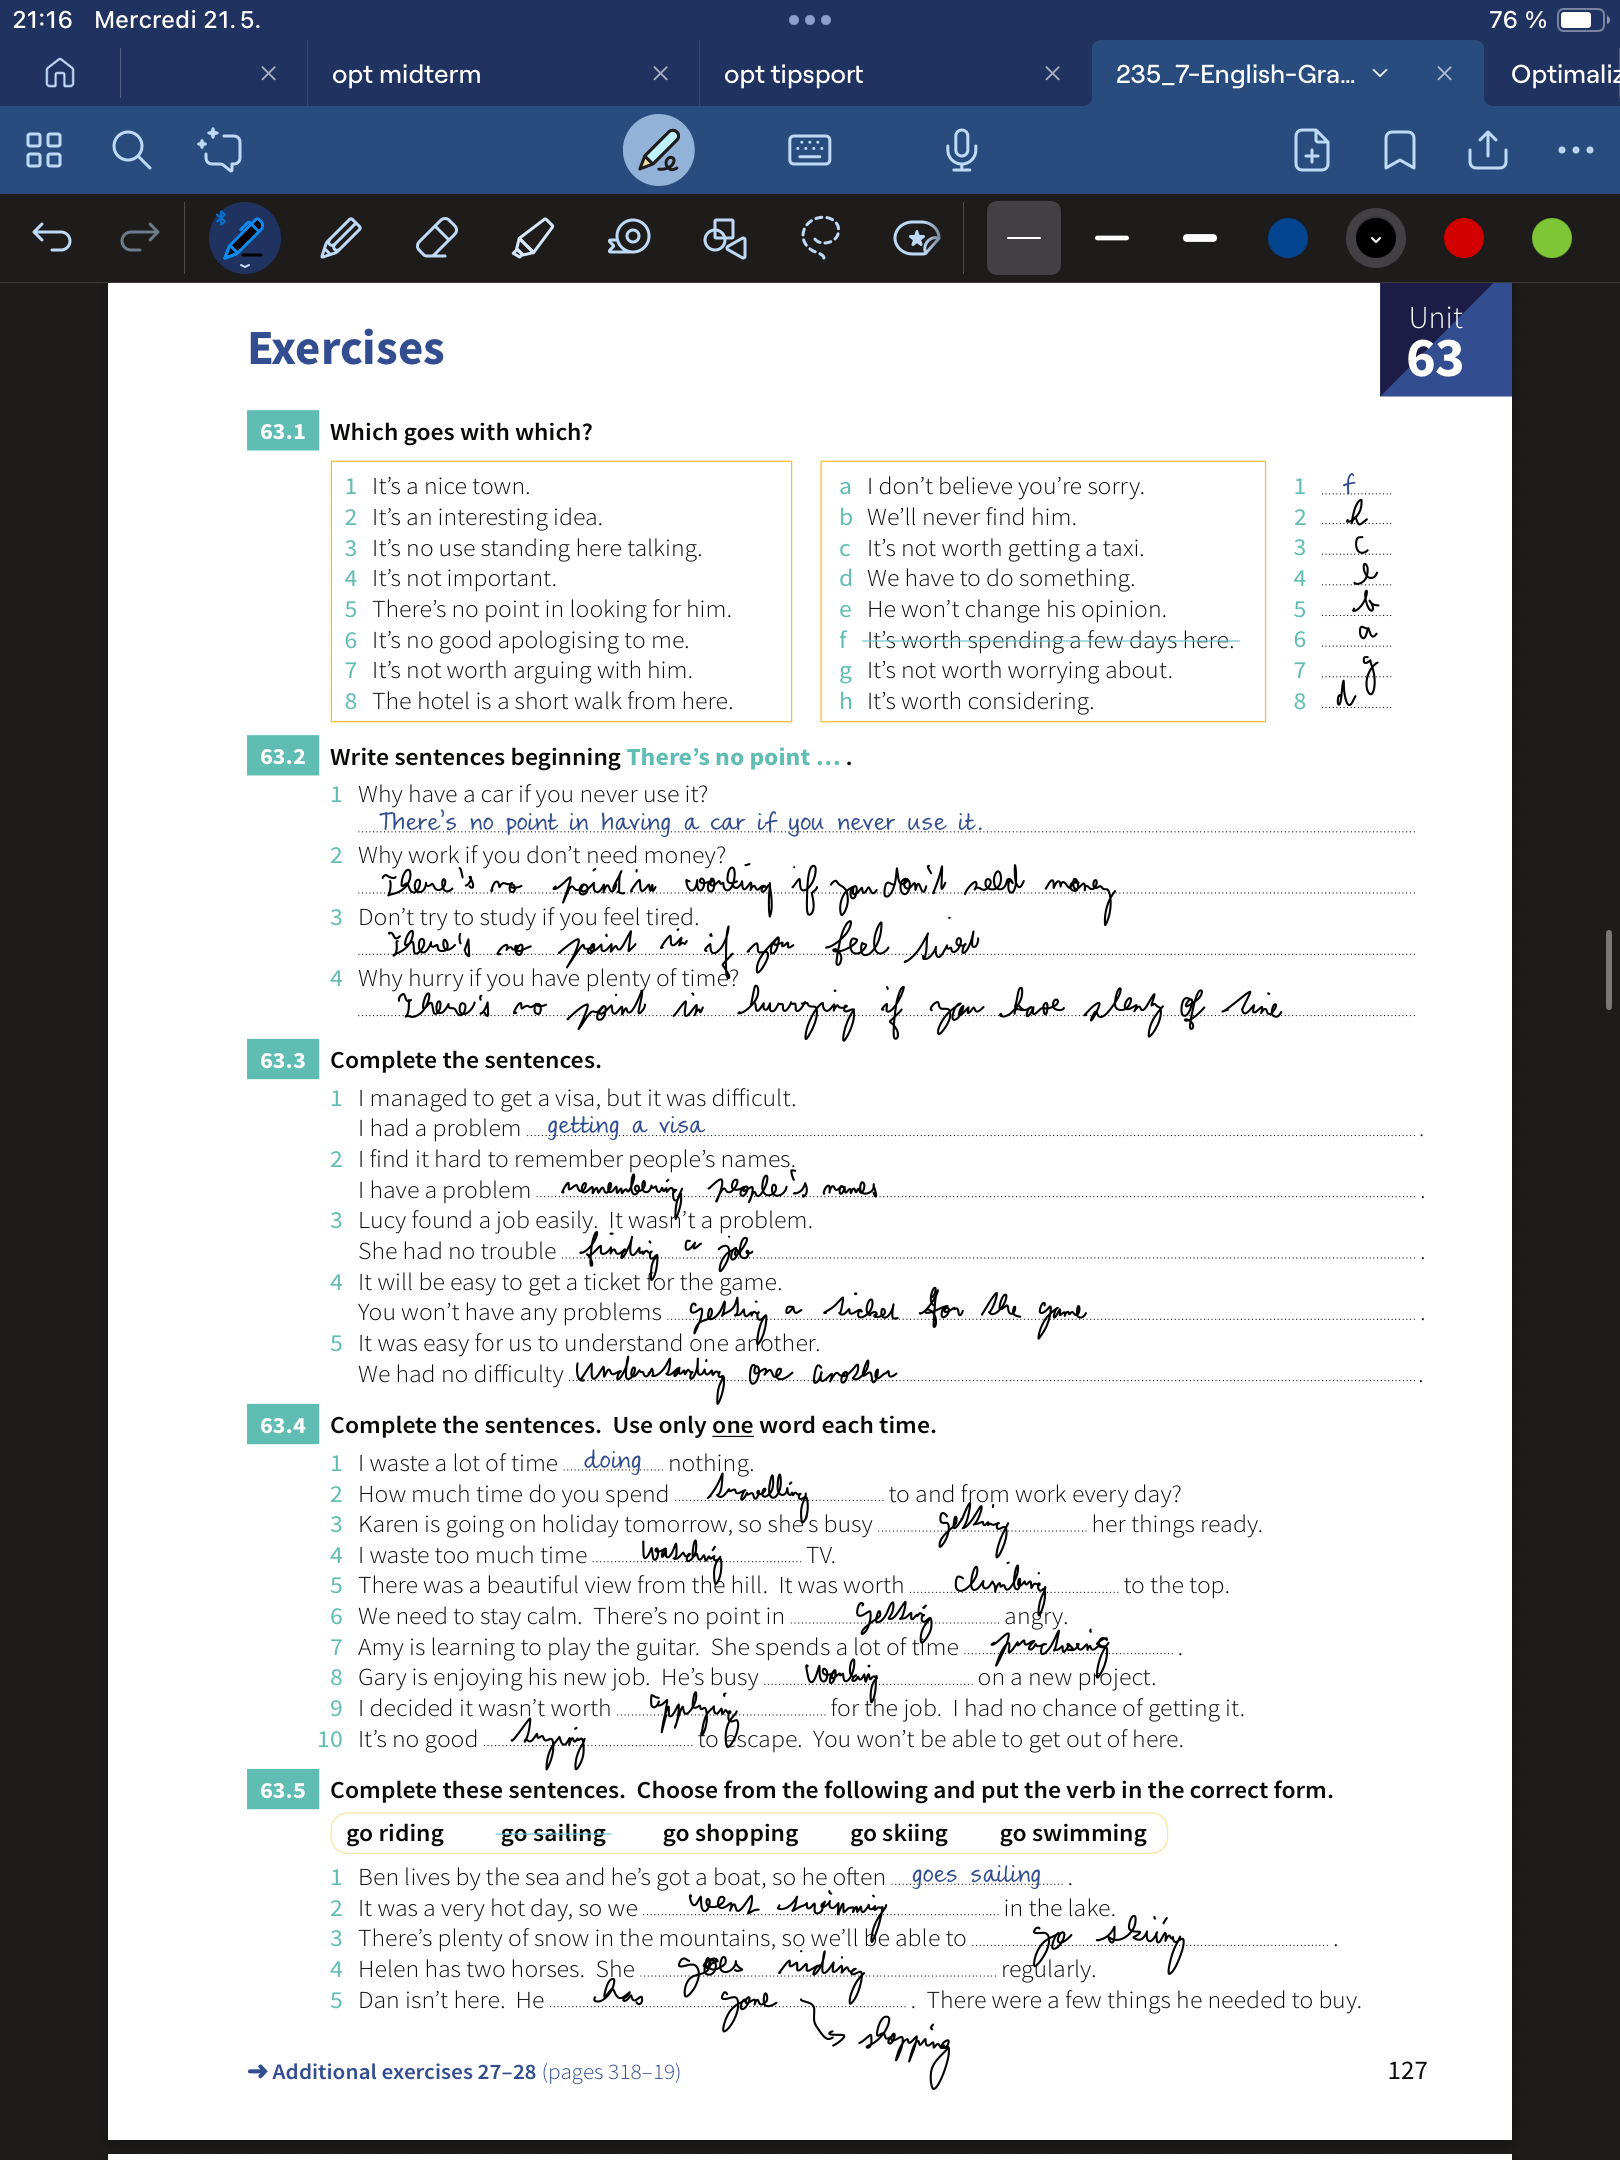 21:16 Mercredi 21. 5.
76 %
opt midterm
opt tipsport
235_7-English-Gra...
Optimaliz
Exercises
Unit
63
63.1 Which goes with which?
1 It's a nice town.
2 It's an interesting idea.
3 It's no use standing here talking.
4 It's not important.
5 There's no point in looking for him.
6 It's no good apologising to me.
7 It's not worth arguing with him.
8 The hotel is a short walk from here.
a I don't believe you're sorry.
b We'll never find him.
c It's not worth getting a taxi.
d We have to do something.
e He won't change his opinion.
f It's worth spending a few days here.
g It's not worth worrying about.
h It's worth considering.
1 f
2 h
3 c
4 e
5 b
6 a
7 g
8 d
63.2 Write sentences beginning There's no point ... .
1 Why have a car if you never use it?
There's no point in having a car if you never use it.
2 Why work if you don't need money?
There's no point in working if you don't need money
3 Don't try to study if you feel tired.
There's no point in if you feel tired
4 Why hurry if you have plenty of time?
There's no point in hurrying if you have plenty of time
63.3 Complete the sentences.
1 I managed to get a visa, but it was difficult.
I had a problem getting a visa .
2 I find it hard to remember people's names.
I have a problem remembering people's names .
3 Lucy found a job easily. It wasn't a problem.
She had no trouble finding a job .
4 It will be easy to get a ticket for the game.
You won't have any problems getting a ticket for the game .
5 It was easy for us to understand one another.
We had no difficulty understanding one another .
63.4 Complete the sentences. Use only one word each time.
1 I waste a lot of time doing nothing.
2 How much time do you spend travelling to and from work every day?
3 Karen is going on holiday tomorrow, so she's busy getting her things ready.
4 I waste too much time watching TV.
5 There was a beautiful view from the hill. It was worth climbing to the top.
6 We need to stay calm. There's no point in getting angry.
7 Amy is learning to play the guitar. She spends a lot of time practising .
8 Gary is enjoying his new job. He's busy working on a new project.
9 I decided it wasn't worth applying for the job. I had no chance of getting it.
10 It's no good trying to escape. You won't be able to get out of here.
63.5 Complete these sentences. Choose from the following and put the verb in the correct form.
go riding go sailing go shopping go skiing go swimming
1 Ben lives by the sea and he's got a boat, so he often goes sailing .
2 It was a very hot day, so we went swimming in the lake.
3 There's plenty of snow in the mountains, so we'll be able to go skiing .
4 Helen has two horses. She goes riding regularly.
5 Dan isn't here. He has gone . There were a few things he needed to buy.
shopping
➜ Additional exercises 27–28 (pages 318–19)
127